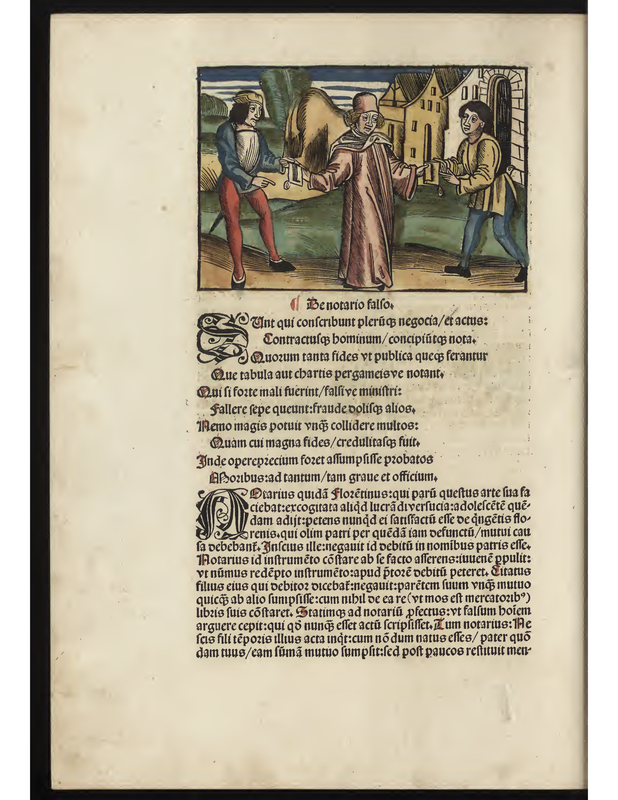 ¶ De notario falso.
SUnt qui conscribunt plerūqꝫ negocia/et actus:
Contractusqꝫ hominum/concipiūtqꝫ nota.
Quorum tanta fides vt publica queqꝫ ferantur
Que tabula aut chartis pergameisve notant.
Qui si forte mali fuerint/falsive ministri:
Fallere sepe queunt:fraude dolisqꝫ alios.
Nemo magis potuit vnqꝫ̄ collidere multos:
Quam cui magna fides/credulitasqꝫ fuit.
Inde opereprecium foret assumpsisse probatos
Moribus:ad tantum/tam graue et officium.
NOtarius quidā Florētinus:qui parū questus arte sua fa
ciebat:excogitata aliqd̄ lucrādi versucia:adolescētē quē-
dam adijt:petens nunqd̄ ei satisfactū esse de qn̄gētis flo-
renis.qui olim patri per quēdā iam defunctū/mutui cau
sa debebant. Inscius ille:negauit id debitū in nomibus patris esse.
Notarius id instrumēto cōstare ab se facto asserens:iuuenē ꝓpulit:
vt nūmus redēpto instrumēto:apud p̄torē debitū peteret. Citatus
filius eius qui debitor dicebat:negauit:parētem suum vnqꝫ̄ mutuo
quicqꝫ̄ ab alio sumpsisse:cum nihil de ea re(vt mos est mercatoribꝰ)
libris suis cōstaret. Statimqꝫ ad notariū ꝓfectus:vt falsum hoīem
arguere cepit:qui qd̄ nunqꝫ̄ esset actū scripsisset. Tum notarius:Ne
scis fili tēporis illius acta inqt:cum nō dum natus esses/ pater quō
dam tuus/eam sūmā mutuo sumpsit:sed post paucos restituit men-